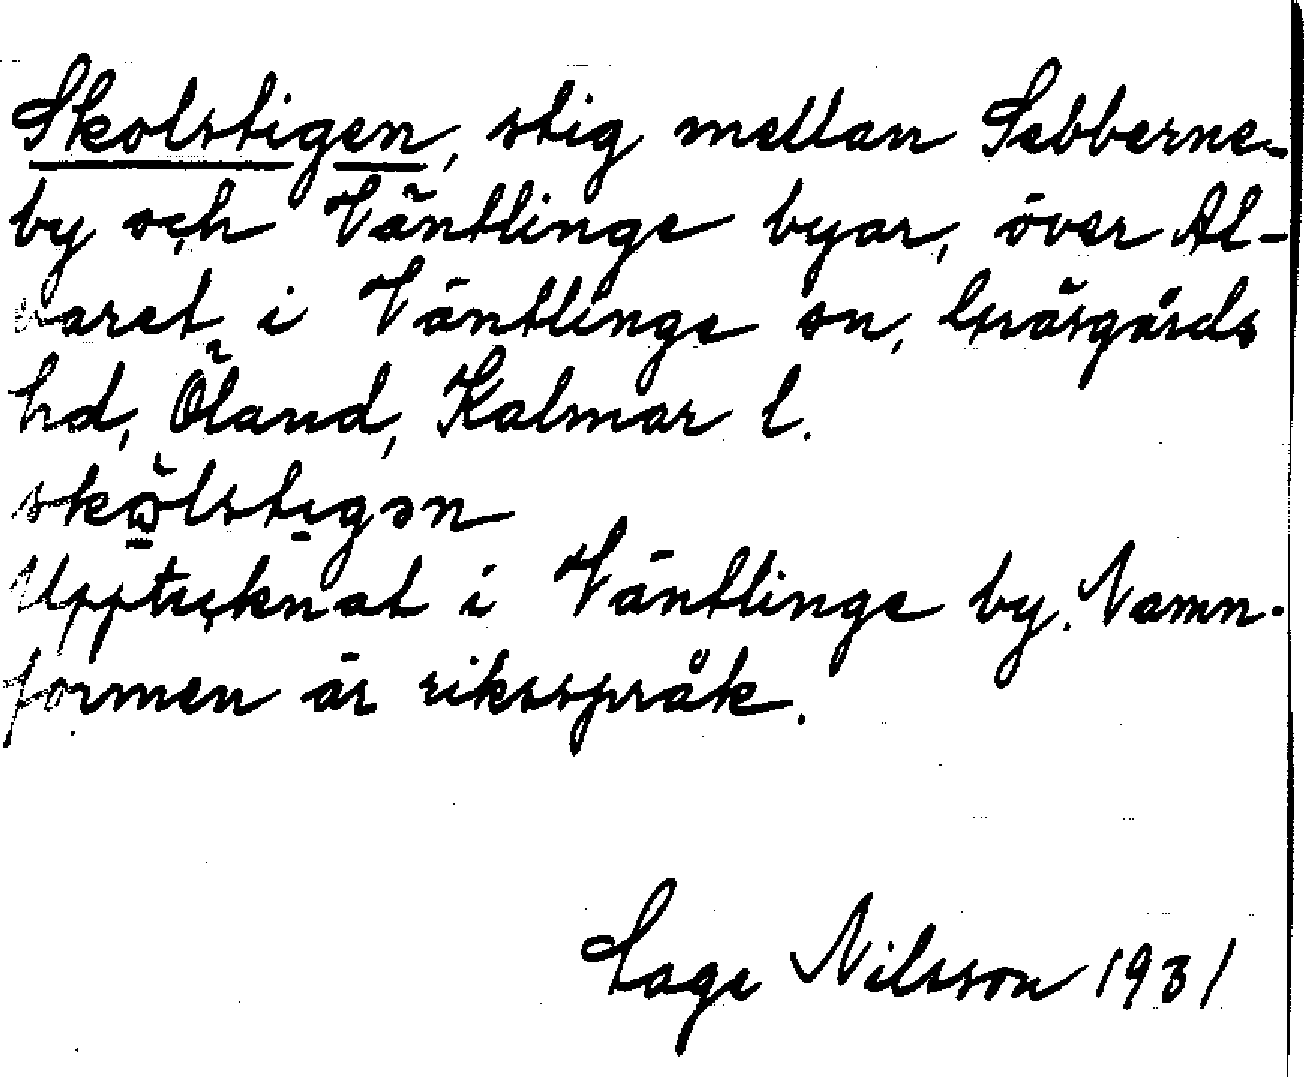 Skolstigen, stig mellan Sebberne-
by och Väntlinge byar, över Al-
varet i Väntlinge sn, Gräsgårds
hd, Öland, Kalmar l.
skolstigən
Upptecknat i Väntlinge by. Namn-
formen är riksspråk.
Sage Nilsson 1931